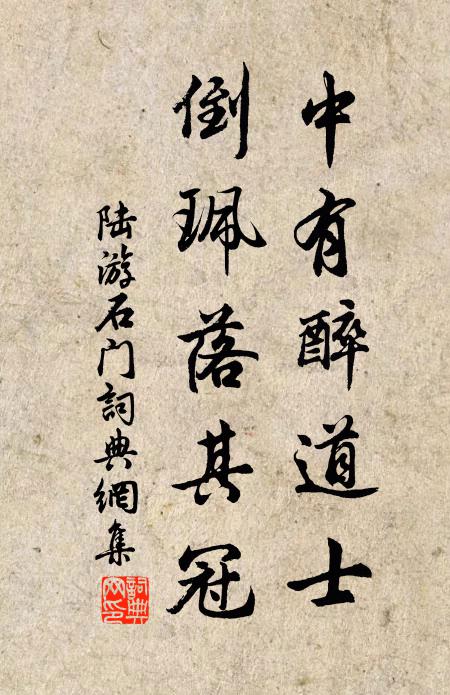 中有醉道士
倒珮落其冠
陆游石门詞典網集
詞典网印